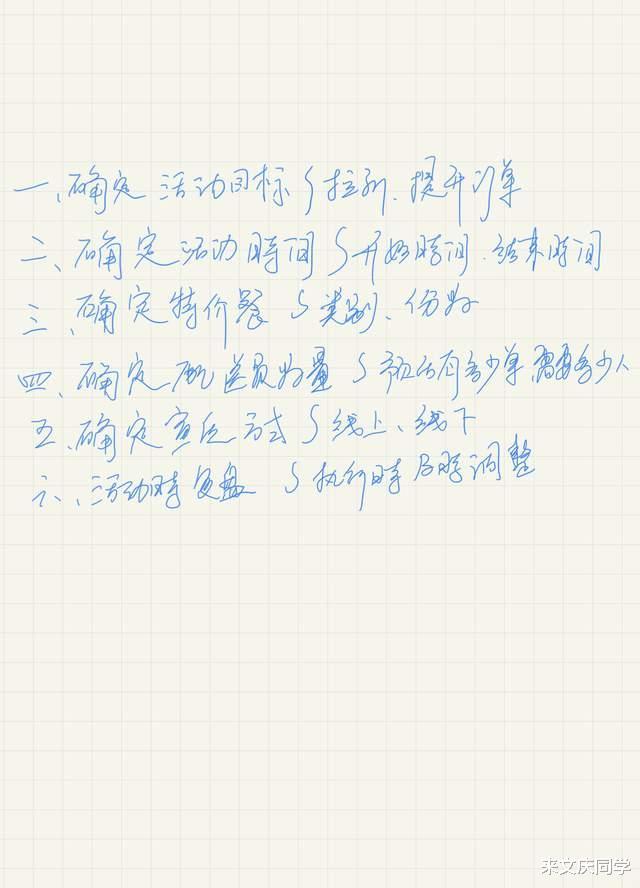 一、确定活动目标 拉新、提升订单
二、确定活动時间 开始時间、结束時间
三、确定特价餐 类别、份数
四、确定配送员数量 预估有多少单,需要多少人
五、确定宣传方式 线上、线下
六、活动時复盘 执行時及時调整
来文庆同学